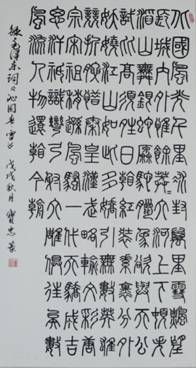 北國風光千里冰封萬里雪飄望長城
內外惟餘莽莽大河上下頓失滔
滔山舞銀蛇原馳蠟象欲與天公
試比高須晴日看紅裝素裹分外
妖嬈江山如此多嬌引無數英雄
競折腰惜秦皇漢武略輸文采唐
宗宋祖稍遜風騷一代天驕成吉
思汗只識彎弓射大雕俱往矣數
風流人物還看今朝
錄毛澤東词沁园春雪 戊戌秋月 寶忠書